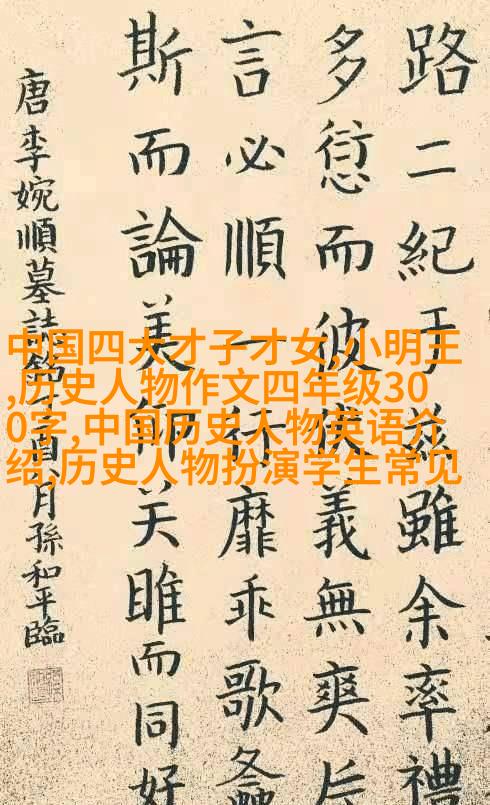 路二紀于茲雖余率禮
多愆而彼義無爽
言必順一行靡乖歌
斯而論美关雎而同好
唐李婉順墓誌銘酉月孫和平臨
中国四大才子才女,小明王
,历史人物作文四年级30
0字,中国历史人物英语介
绍,历史人物扮演学生常见